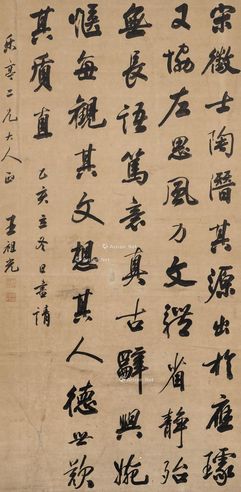 宋徵士陶潛其源出於應璩
又協左思風力文體省靜殆
無長語篤意真古辭興婉
愜每觀其文想其人德世歎
其質直
乙亥立冬日書請
樂亭二兄大人正
王祖光